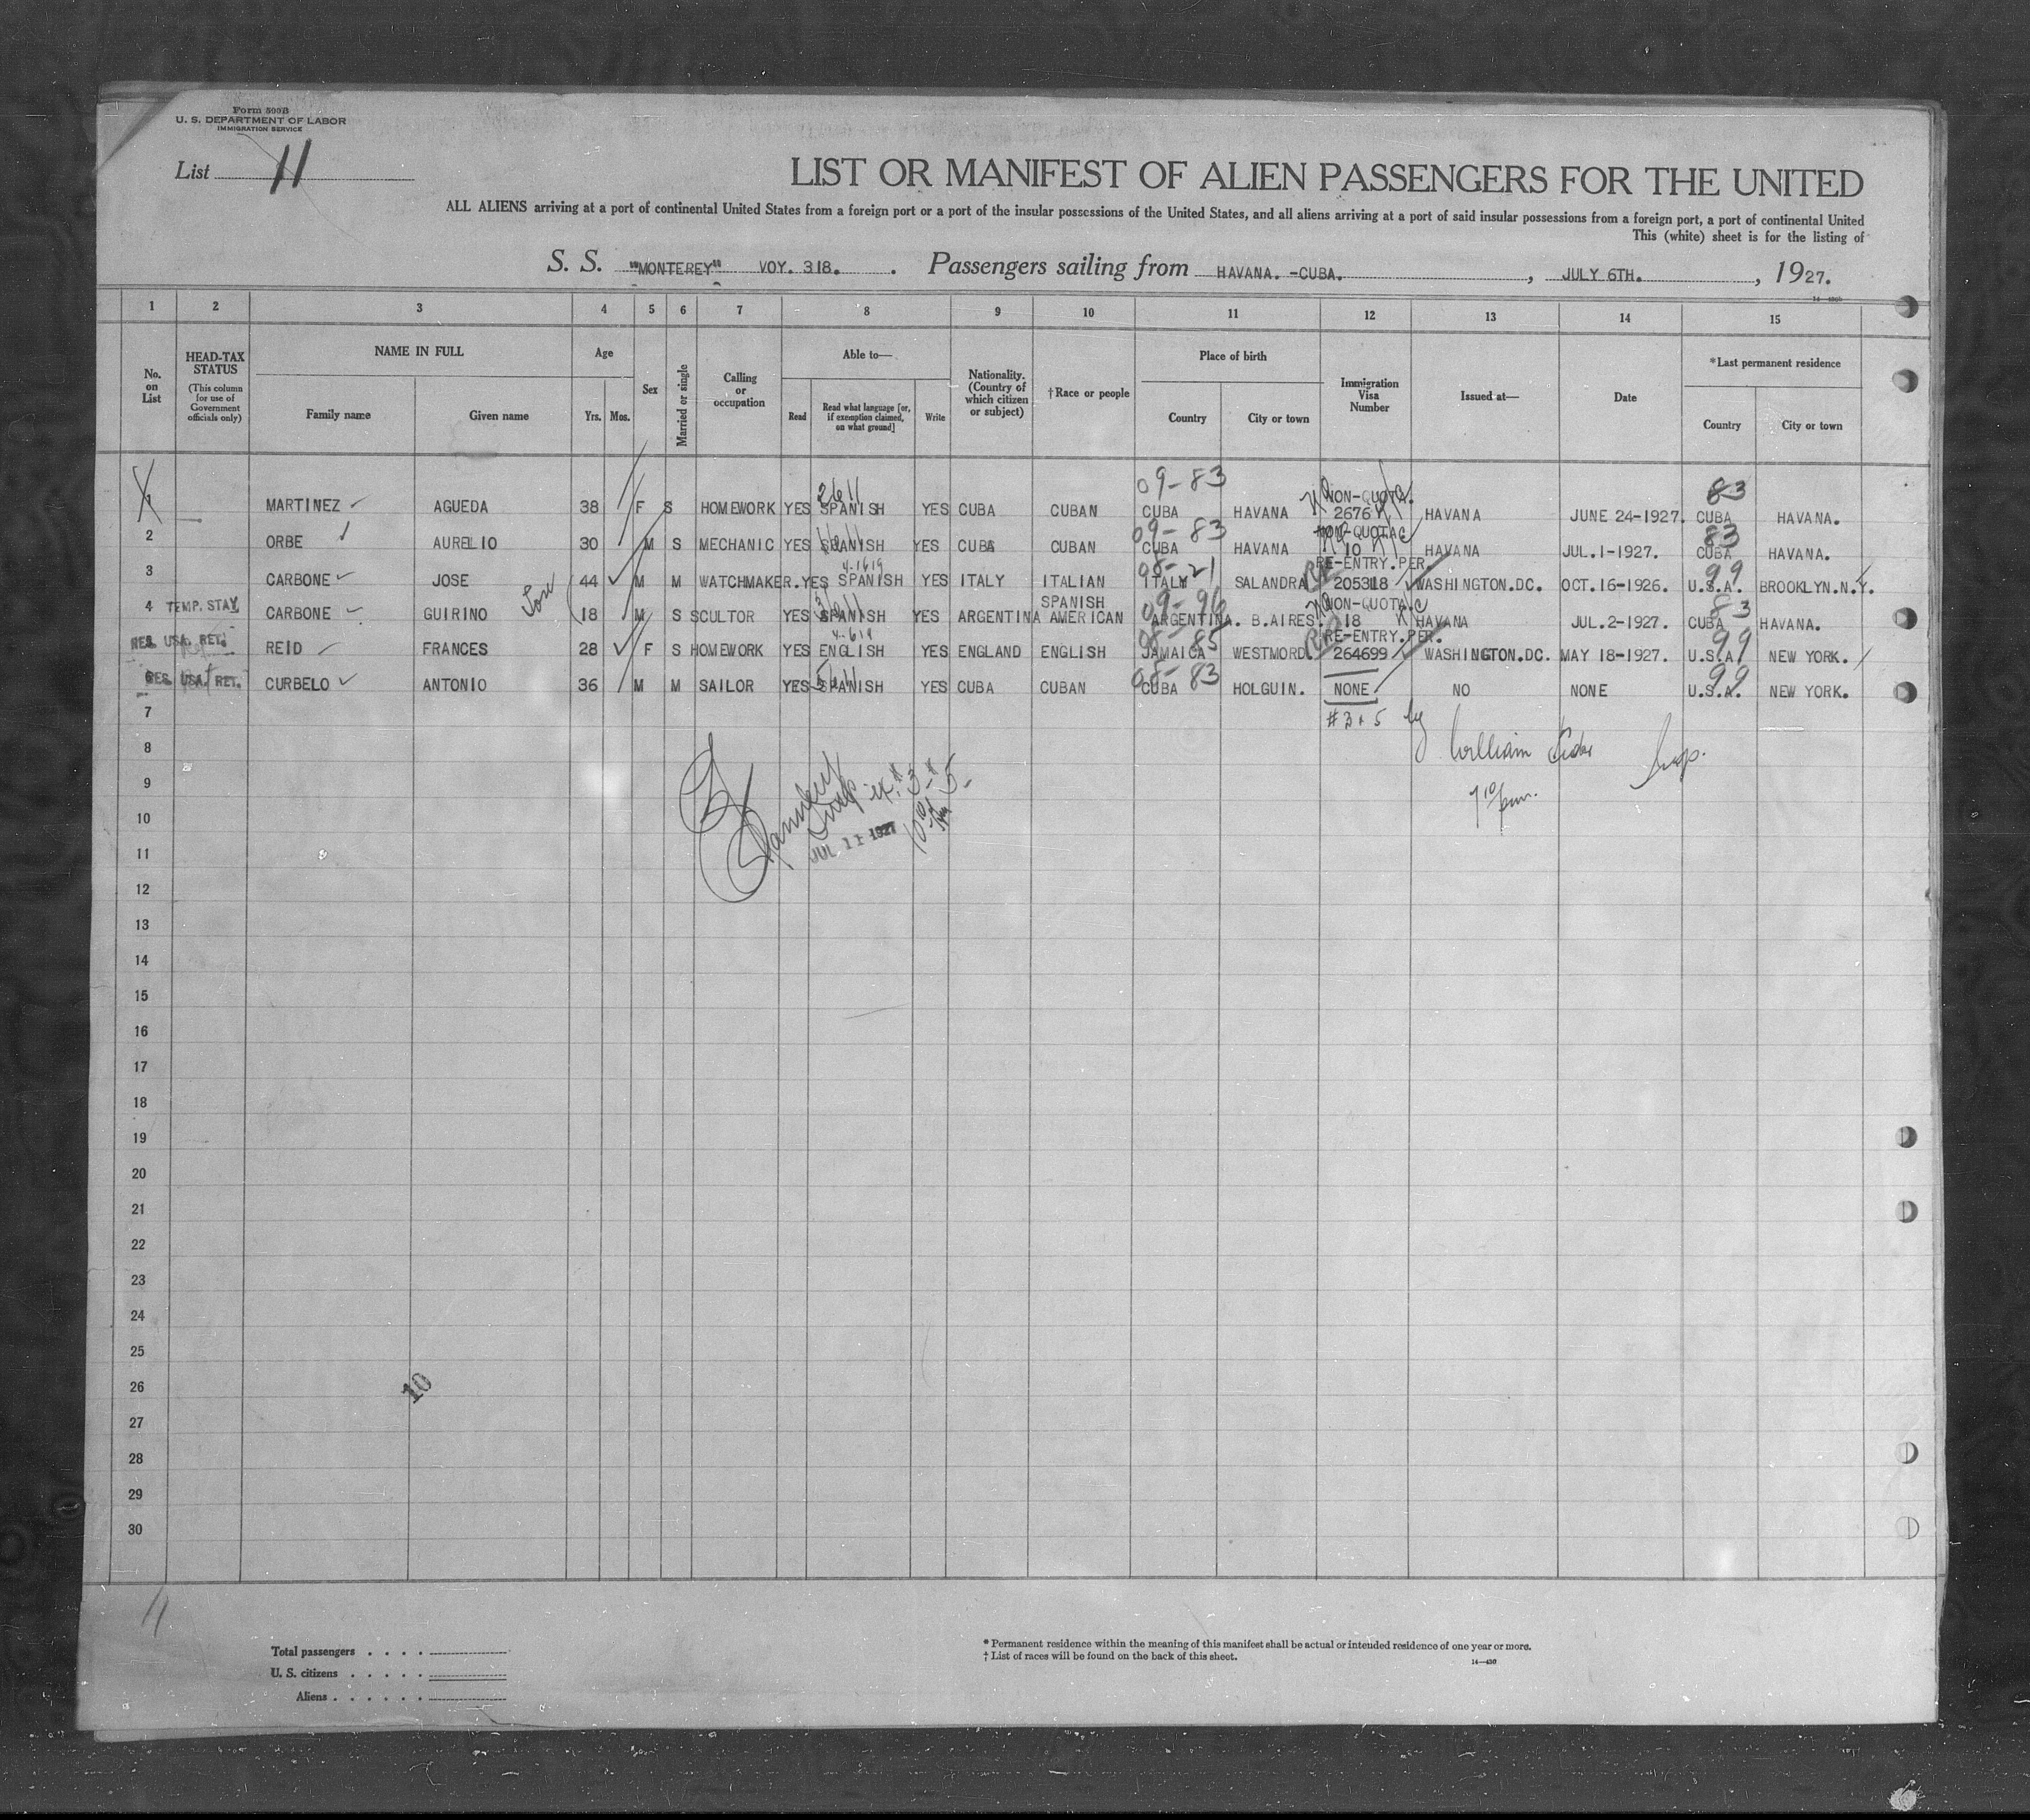 Form 500B
U. S. DEPARTMENT OF LABOR
IMMIGRATION SERVICE
List 11
LIST OR MANIFEST OF ALIEN PASSENGERS FOR THE UNITED
ALL ALIENS arriving at a port of continental United States from a foreign port or a port of the insular possessions of the United States, and all aliens arriving at a port of said insular possessions from a foreign port, a port of continental United
This (white) sheet is for the listing of
S. S. "MONTEREY" VOY. 318. Passengers sailing from HAVANA. -CUBA. , JULY 6TH. , 1927.
1 2 3 4 5 6 7 8 9 10 11 12 13 14 15
No. on List
HEAD-TAX STATUS (This column for use of Government officials only)
NAME IN FULL
Family name Given name
Age
Yrs. Mos.
Sex
Married or single
Calling or occupation
Able to—
Read Read what language [or, if exemption claimed, on what ground] Write
Nationality. (Country of which citizen or subject)
†Race or people
Place of birth
Country City or town
Immigration Visa Number
Issued at—
Date
*Last permanent residence
Country City or town
09-83 83
NON-QUOTA.
1 MARTINEZ AGUEDA 38 F S HOMEWORK YES SPANISH YES CUBA CUBAN CUBA HAVANA 2676 HAVANA JUNE 24-1927. CUBA HAVANA.
09-83 NON-QUOTA 83
2 ORBE AURELIO 30 M S MECHANIC YES SPANISH YES CUBA CUBAN CUBA HAVANA 10 HAVANA JUL.1-1927. CUBA HAVANA.
08-21 RE-ENTRY.PER. 99
3 CARBONE JOSE 44 M M WATCHMAKER. YES SPANISH YES ITALY ITALIAN ITALY SALANDRA 205318 WASHINGTON.DC. OCT.16-1926. U.S.A. BROOKLYN.N.Y.
SPANISH 09-96 NON-QUOTA. 83
4 TEMP. STAY CARBONE GUIRINO 18 M S SCULTOR YES SPANISH YES ARGENTINA AMERICAN ARGENTINA. B.AIRES. 18 HAVANA JUL.2-1927. CUBA HAVANA.
08-85 RE-ENTRY.PER. 99
RES. USA. RET. REID FRANCES 28 F S HOMEWORK YES ENGLISH YES ENGLAND ENGLISH JAMAICA WESTMORD. 264699 WASHINGTON.DC. MAY 18-1927. U.S.A. NEW YORK.
08-83 99
RES. USA. RET. CURBELO ANTONIO 36 M M SAILOR YES SPANISH YES CUBA CUBAN CUBA HOLGUIN. NONE NO NONE U.S.A. NEW YORK.
7
#3+5 by
8 William Insp.
9
10
JUL 11 1927
11
12
13
14
15
16
17
18
19
20
21
22
23
24
25
26 10
27
28
29
30
11
Total passengers
U. S. citizens
Aliens
* Permanent residence within the meaning of this manifest shall be actual or intended residence of one year or more.
† List of races will be found on the back of this sheet.
14—430